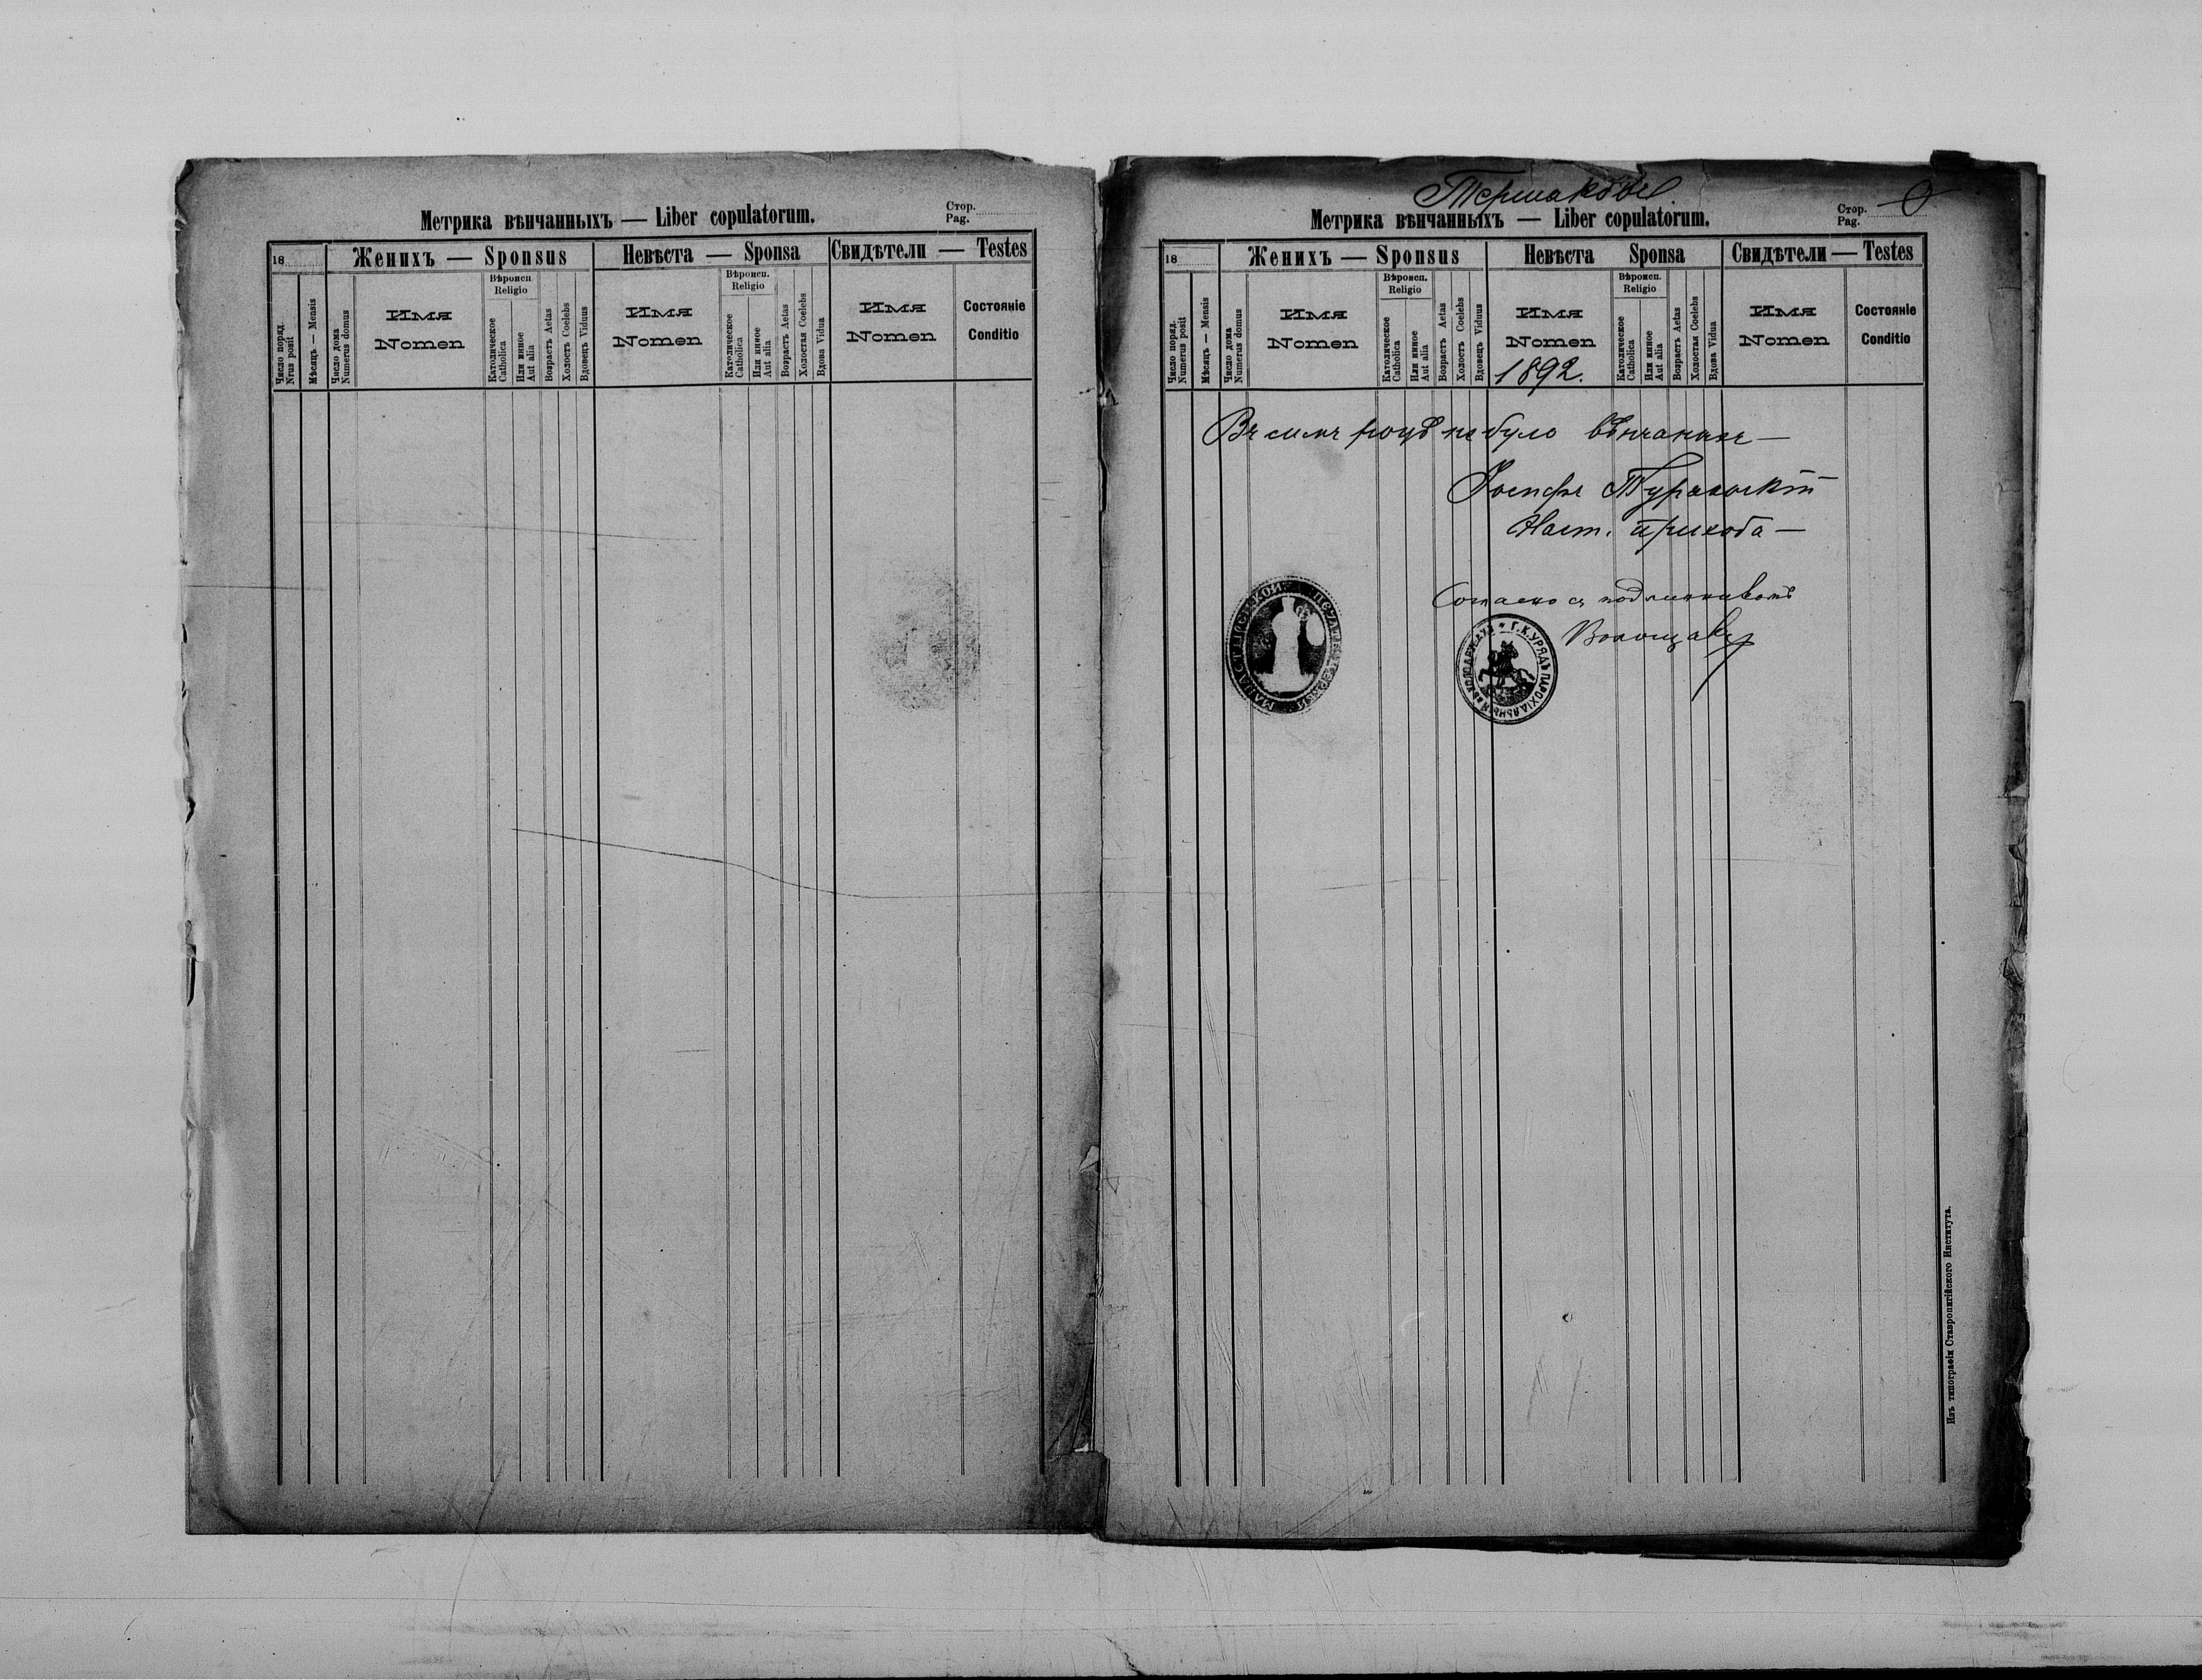 Метрика вѣнчанныхъ — Liber copulatorum.
Стор.
Pag.
18
Женихъ — Sponsus
Невѣста — Sponsa
Свидѣтели — Testes
Число поряд.
Nrus posit
Мѣсяцъ — Mensis
Число дома
Numerus domus
Имя
Nomen
Вѣроисп.
Religio
Католическое
Catholica
Или иное
Aut alia
Возрастъ Aetas
Холостъ Coelebs
Вдовецъ Viduus
Имя
Nomen
Вѣроисп.
Religio
Католическое
Catholica
Или иное
Aut alia
Возрастъ Aetas
Холостая Coelebs
Вдова Vidua
Имя
Nomen
Состояніе
Conditio
Тершаковъ
Метрика вѣнчанныхъ — Liber copulatorum.
Стор.
Pag.
18
Женихъ — Sponsus
Невѣста Sponsa
Свидѣтели — Testes
Число поряд.
Numerus posit
Мѣсяцъ — Mensis
Число дома
Numerus domus
Имя
Nomen
Вѣроисп.
Religio
Католическое
Catholica
Или иное
Aut alia
Возрастъ Aetas
Холостъ Coelebs
Вдовецъ Viduus
Имя
Nomen
1892.
Вѣроисп.
Religio
Католическое
Catholica
Или иное
Aut alia
Возрастъ Aetas
Холостая Coelebs
Вдова Vidua
Имя
Nomen
Состояніе
Conditio
Въ семъ роцѣ не було вѣнчаных —
Іосифъ
Наст. прихода —
Согласно съ подлинникомъ
Г. К. УРЯДЪ ПАРОХІАЛЬНЫЙ
Изъ типографіи Ставропигійского Института.